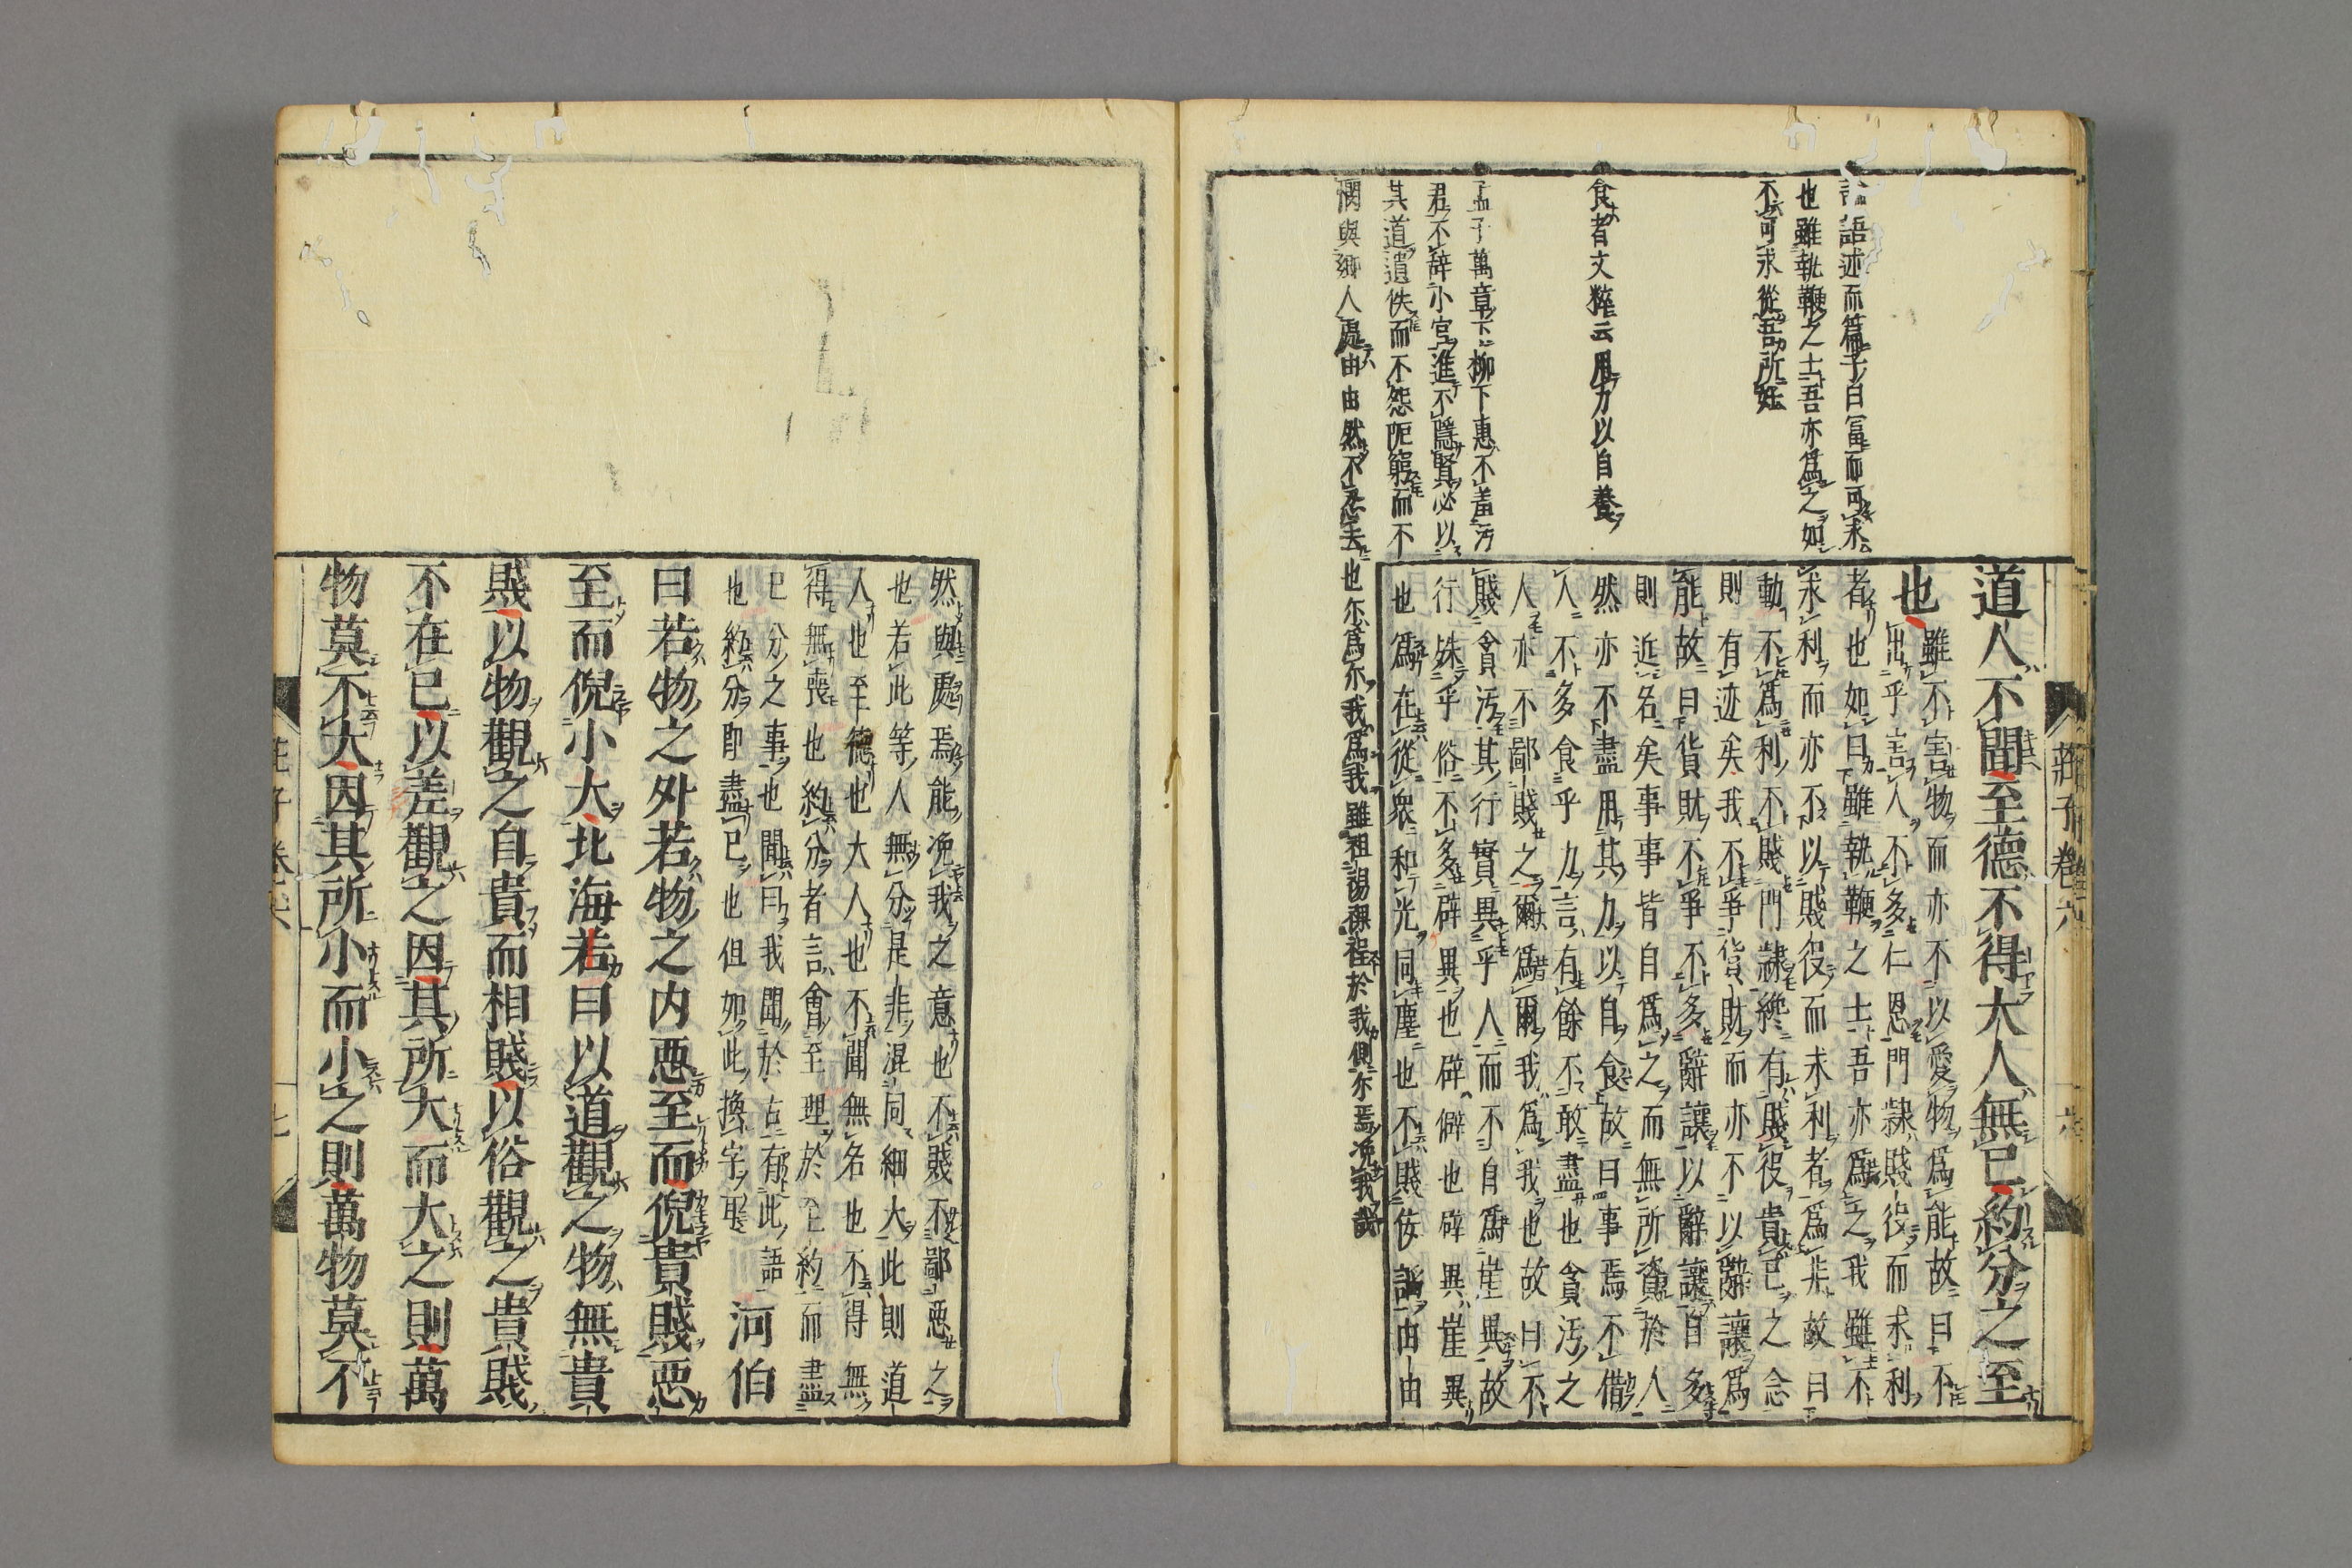 莊子卷六
論語述而篇子曰富而可求
也雖執鞭之士吾亦爲之如
不可求從吾所好
食者文粹云用力以自養
孟子萬章下柳下惠不羞汚
君不辭小官進不隱賢必以
其道遺佚而不怨阨窮而不
憫與鄉人處由由然不忍去也尓爲尓我爲我雖袒裼裸裎於我側尓焉浼我哉
道人不聞至德不得大人無已約分之至
也
雖不害物而亦不以愛物爲能故曰不
出乎害人不多仁恩門隷賤役而求利
者也如曰雖執鞭之士吾亦爲之我雖不
求利而亦不以賤役而求利者爲非故曰
動不爲利不賤門隷纔有賤役貴已之念
則有迹矣我不爭貨財而亦不以辭讓爲
能故曰貨財不爭不多辭讓以辭讓自多
則近名矣事事皆自爲之而無所資於人
然亦不盡用其力以自食故曰事焉不借
人不多食乎力言有餘不敢盡也貪汚之
人亦不鄙賤之爾爲爾我爲我也故曰不
賤貪汚其行實異乎人而不自爲崖異故
行殊乎俗不多辟異也辟僻也辟異崖異
也爲在從衆和光同塵也不賤佞謟由由
然與處焉能浼我之意也不賤不鄙惡之
也若此等人無分是非混同細大此則道
人也至德也大人也不聞無名也不得無
得無喪也約分者言會至理於至約而盡
已分之事也聞曰我聞於古有此語
也約分即盡已也但如此換字耳
河伯
曰若物之外若物之内惡至而倪貴賤惡
至而倪小大北海若曰以道觀之物無貴
賤以物觀之自貴而相賤以俗觀之貴賤
不在已以差觀之因其所大而大之則萬
物莫不大因其所小而小之則萬物莫不